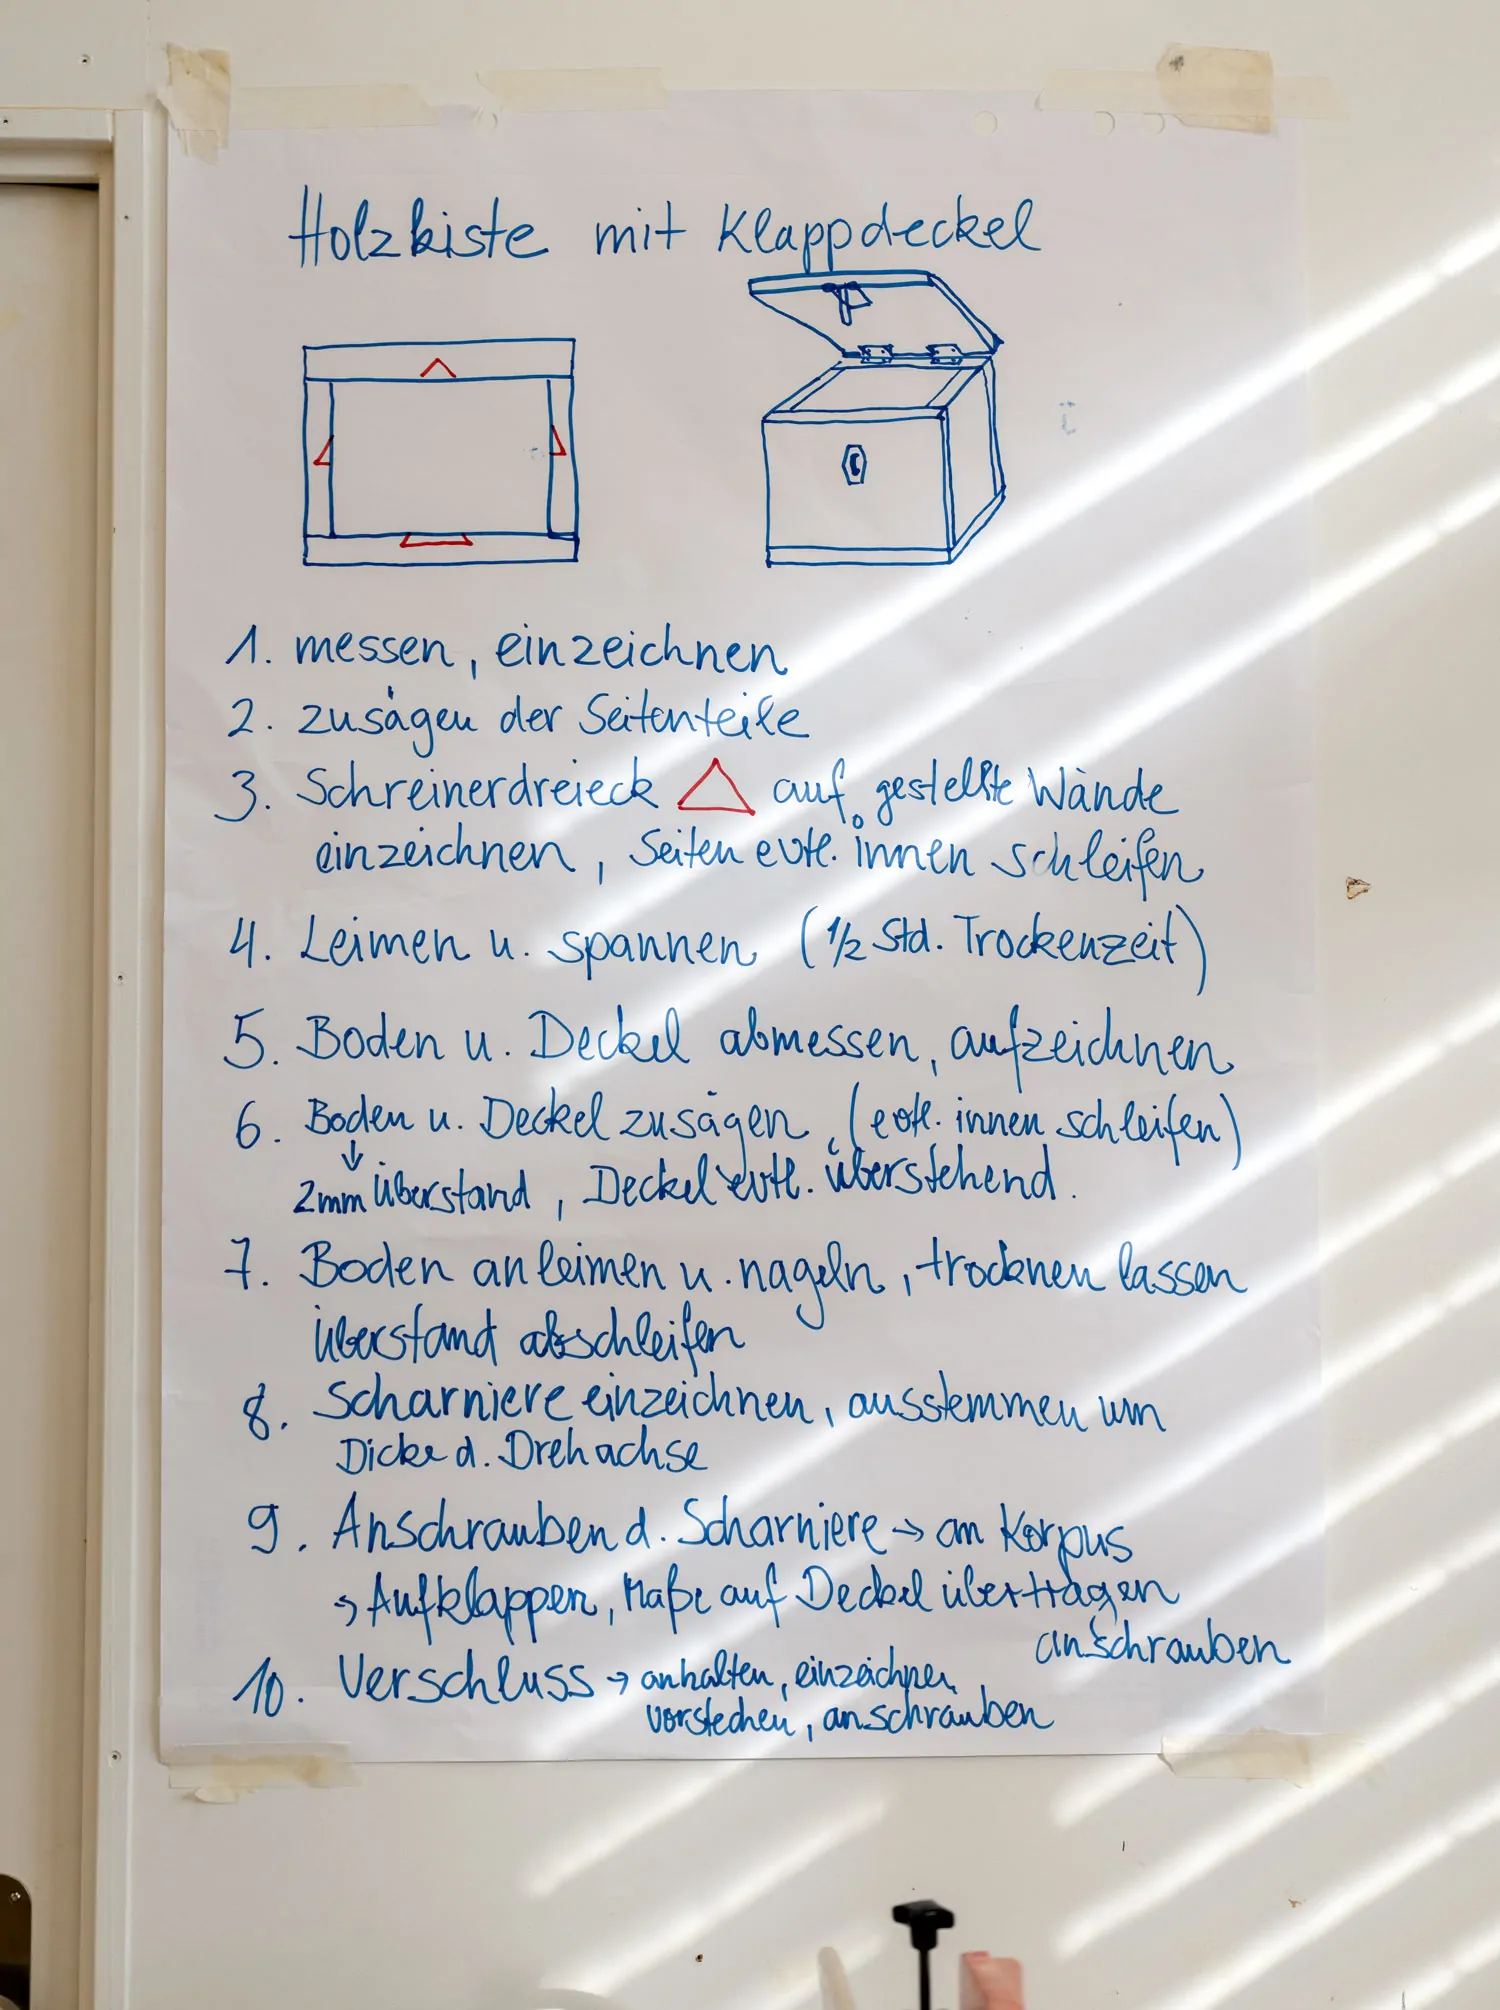 Holzkiste mit Klappdeckel
1. messen, einzeichnen
2. zusägen der Seitenteile
3. Schreinerdreieck △ auf gestellte Wände
einzeichnen, Seiten evtl. innen schleifen
4. Leimen u. spannen (1/2 Std. Trockenzeit)
5. Boden u. Deckel abmessen, aufzeichnen
6. Boden u. Deckel zusägen, (evtl. innen schleifen)
↓
2mm Überstand, Deckel evtl. überstehend.
7. Boden anleimen u. nageln, trocknen lassen
Überstand abschleifen
8. Scharniere einzeichnen, ausstemmen um
Dicke d. Drehachse
9. Anschrauben d. Scharniere → am Korpus
→ Aufklappen, Maße auf Deckel übertragen
anschrauben
10. Verschluss → anhalten, einzeichnen,
vorstechen, anschrauben